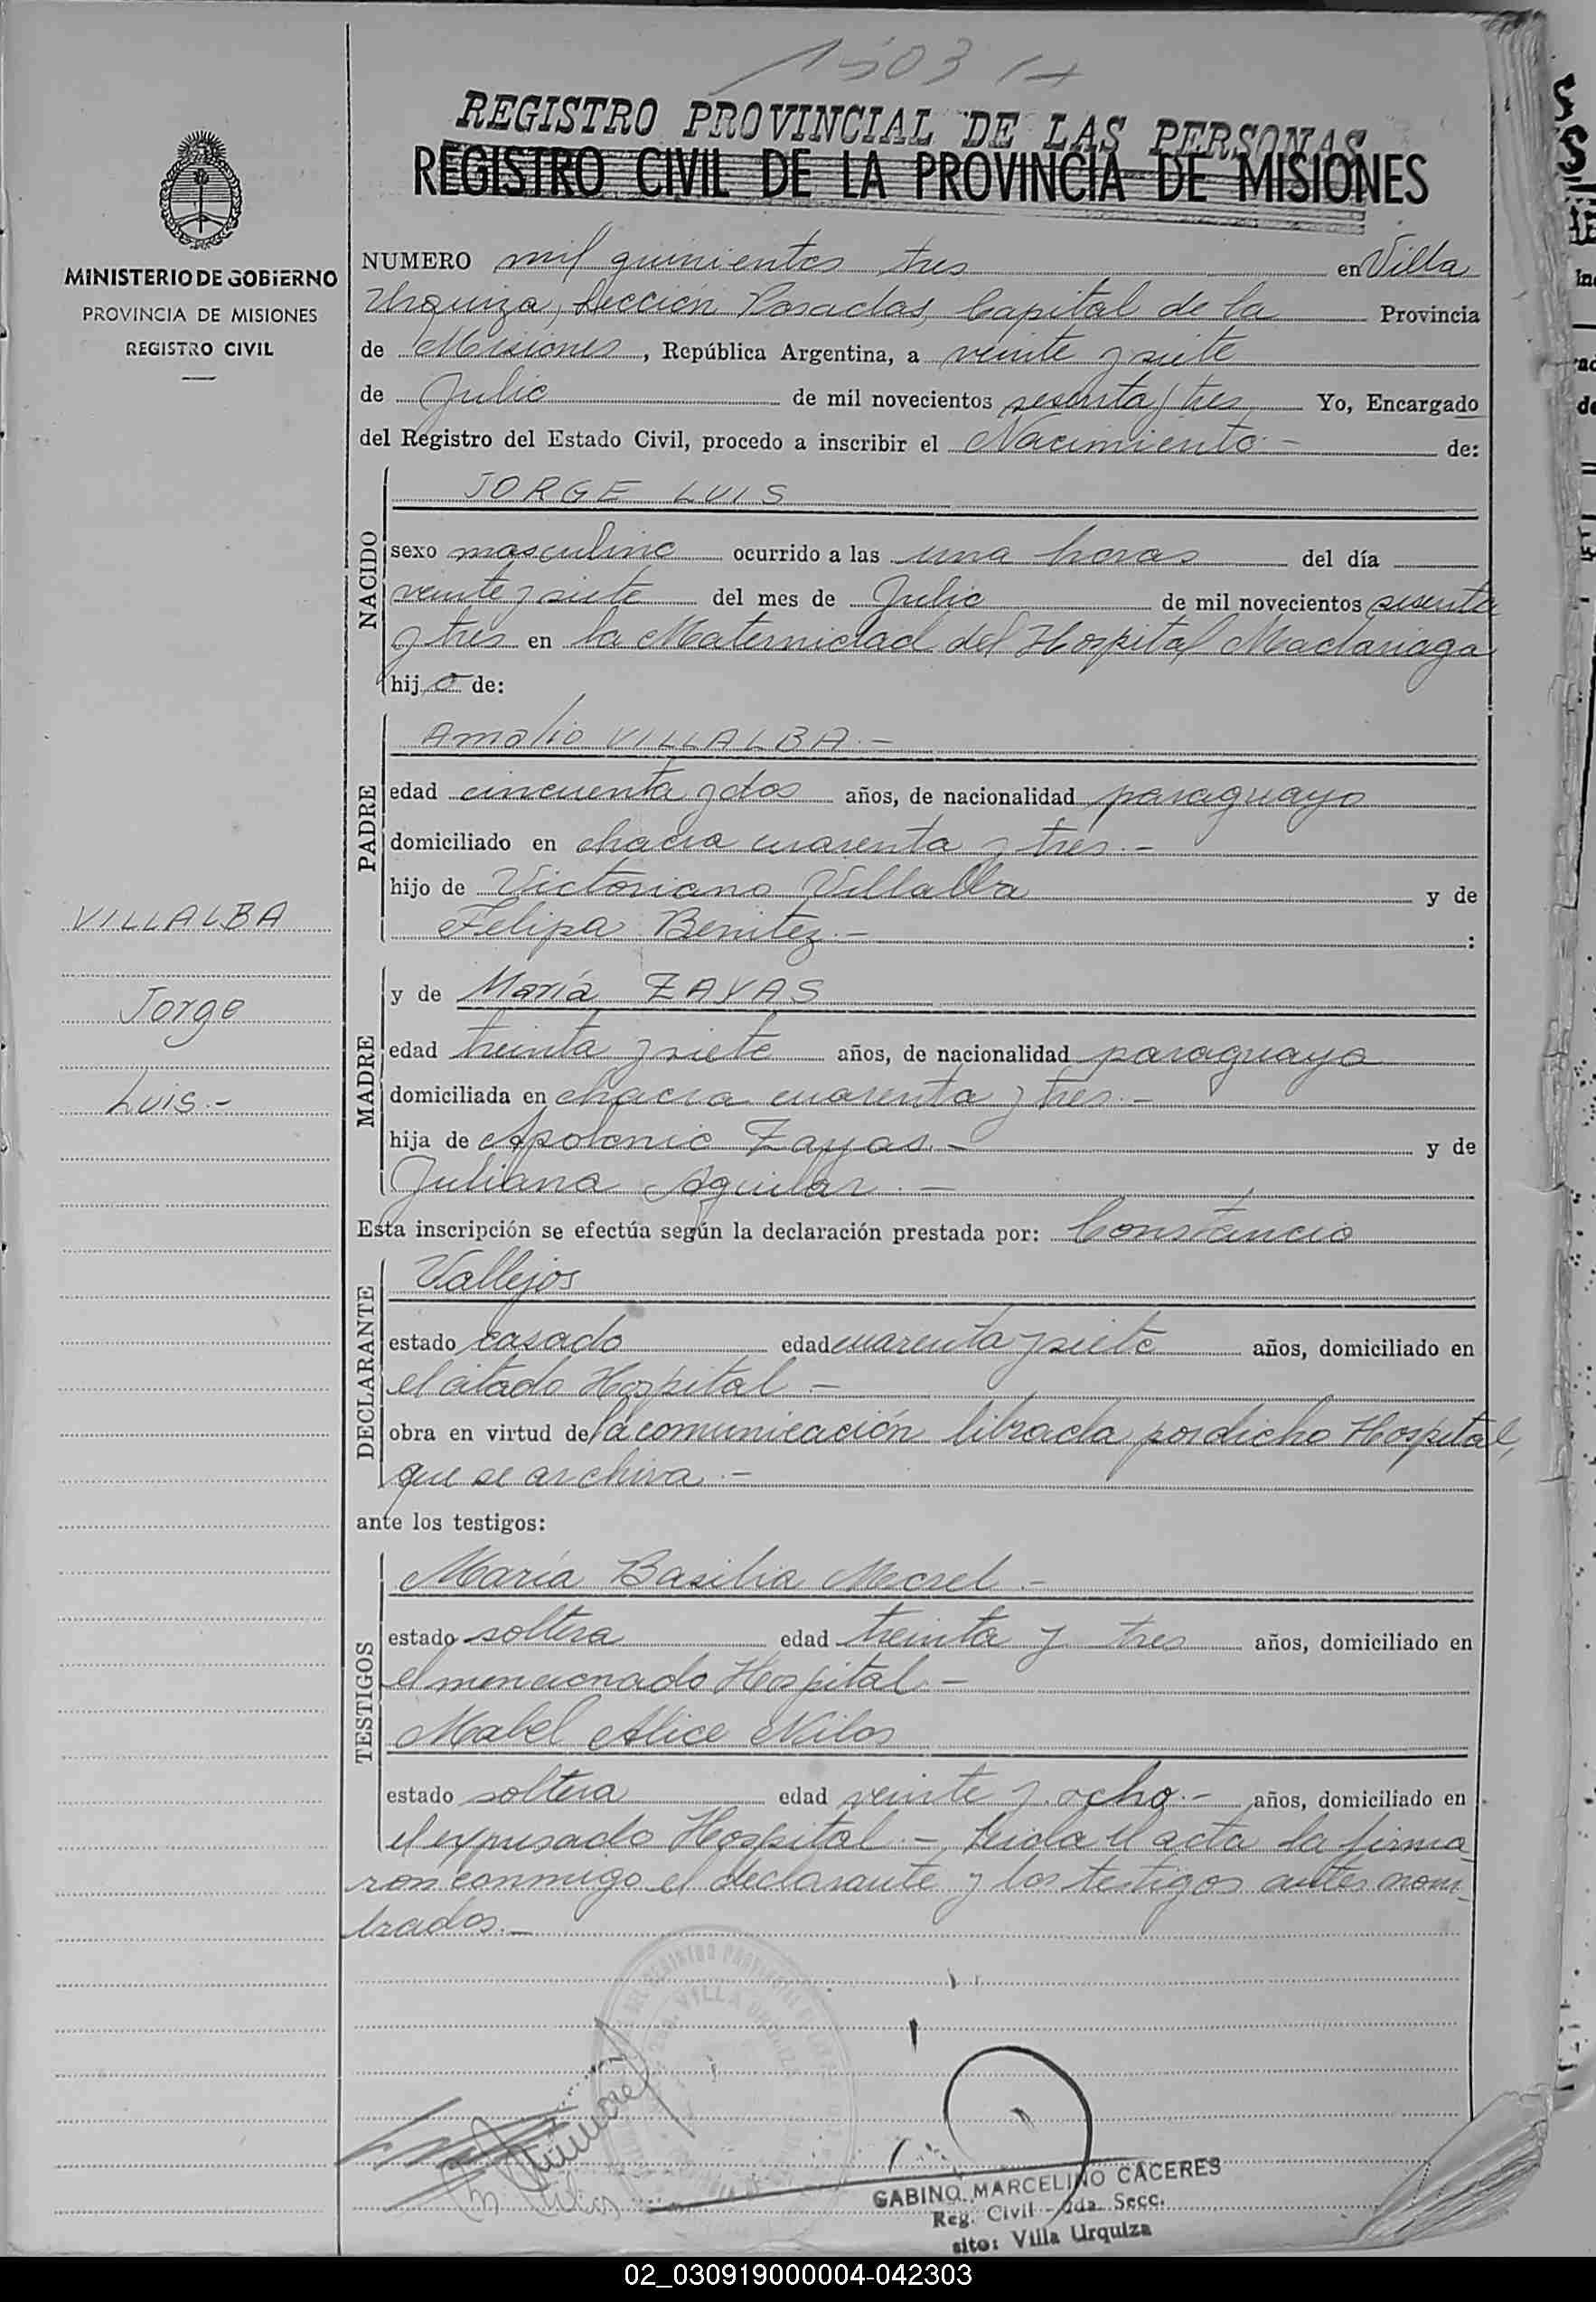 1503
REGISTRO PROVINCIAL DE LAS PERSONAS
REGISTRO CIVIL DE LA PROVINCIA DE MISIONES
MINISTERIO DE GOBIERNO
PROVINCIA DE MISIONES
REGISTRO CIVIL
NUMERO mil quinientos tres en Villa
Urquiza, Sección Posadas, Capital de la Provincia
de Misiones, República Argentina, a veinte y siete
de Julio de mil novecientos sesenta y tres Yo, Encargado
del Registro del Estado Civil, procedo a inscribir el Nacimiento.- de:
NACIDO
JORGE LUIS
sexo masculino ocurrido a las una horas del día
veinte y siete del mes de Julio de mil novecientos sesenta
y tres en la Maternidad del Hospital Madariaga
hijo de:
PADRE
Amalio VILLALBA.-
edad cincuenta y dos años, de nacionalidad paraguayo
domiciliado en chacra cuarenta y tres.-
hijo de Victoriano Villalba y de
Felipa Benitez.- :
VILLALBA
Jorge
Luis.-
MADRE
y de María ZAYAS
edad treinta y siete años, de nacionalidad paraguaya
domiciliada en chacra cuarenta y tres.-
hija de Apolonio Zayas.- y de
Juliana Aguilar.-
Esta inscripción se efectúa según la declaración prestada por: Constancio
DECLARANTE
Vallejos
estado casado edad cuarenta y siete años, domiciliado en
el citado Hospital.-
obra en virtud de la comunicación librada por dicho Hospital,
que se archiva.-
ante los testigos:
TESTIGOS
María Basilia Morel.-
estado soltera edad treinta y tres años, domiciliado en
el mencionado Hospital.-
Mabel Alice Nilos
estado soltera edad veinte y ocho.- años, domiciliado en
el expresado Hospital.- Leida el acta la firma
ron conmigo el declarante y los testigos antes nom-
brados.-
GABINO MARCELINO CACERES
Reg. Civil - 2da. Secc.
sito: Villa Urquiza
02_030919000004-042303